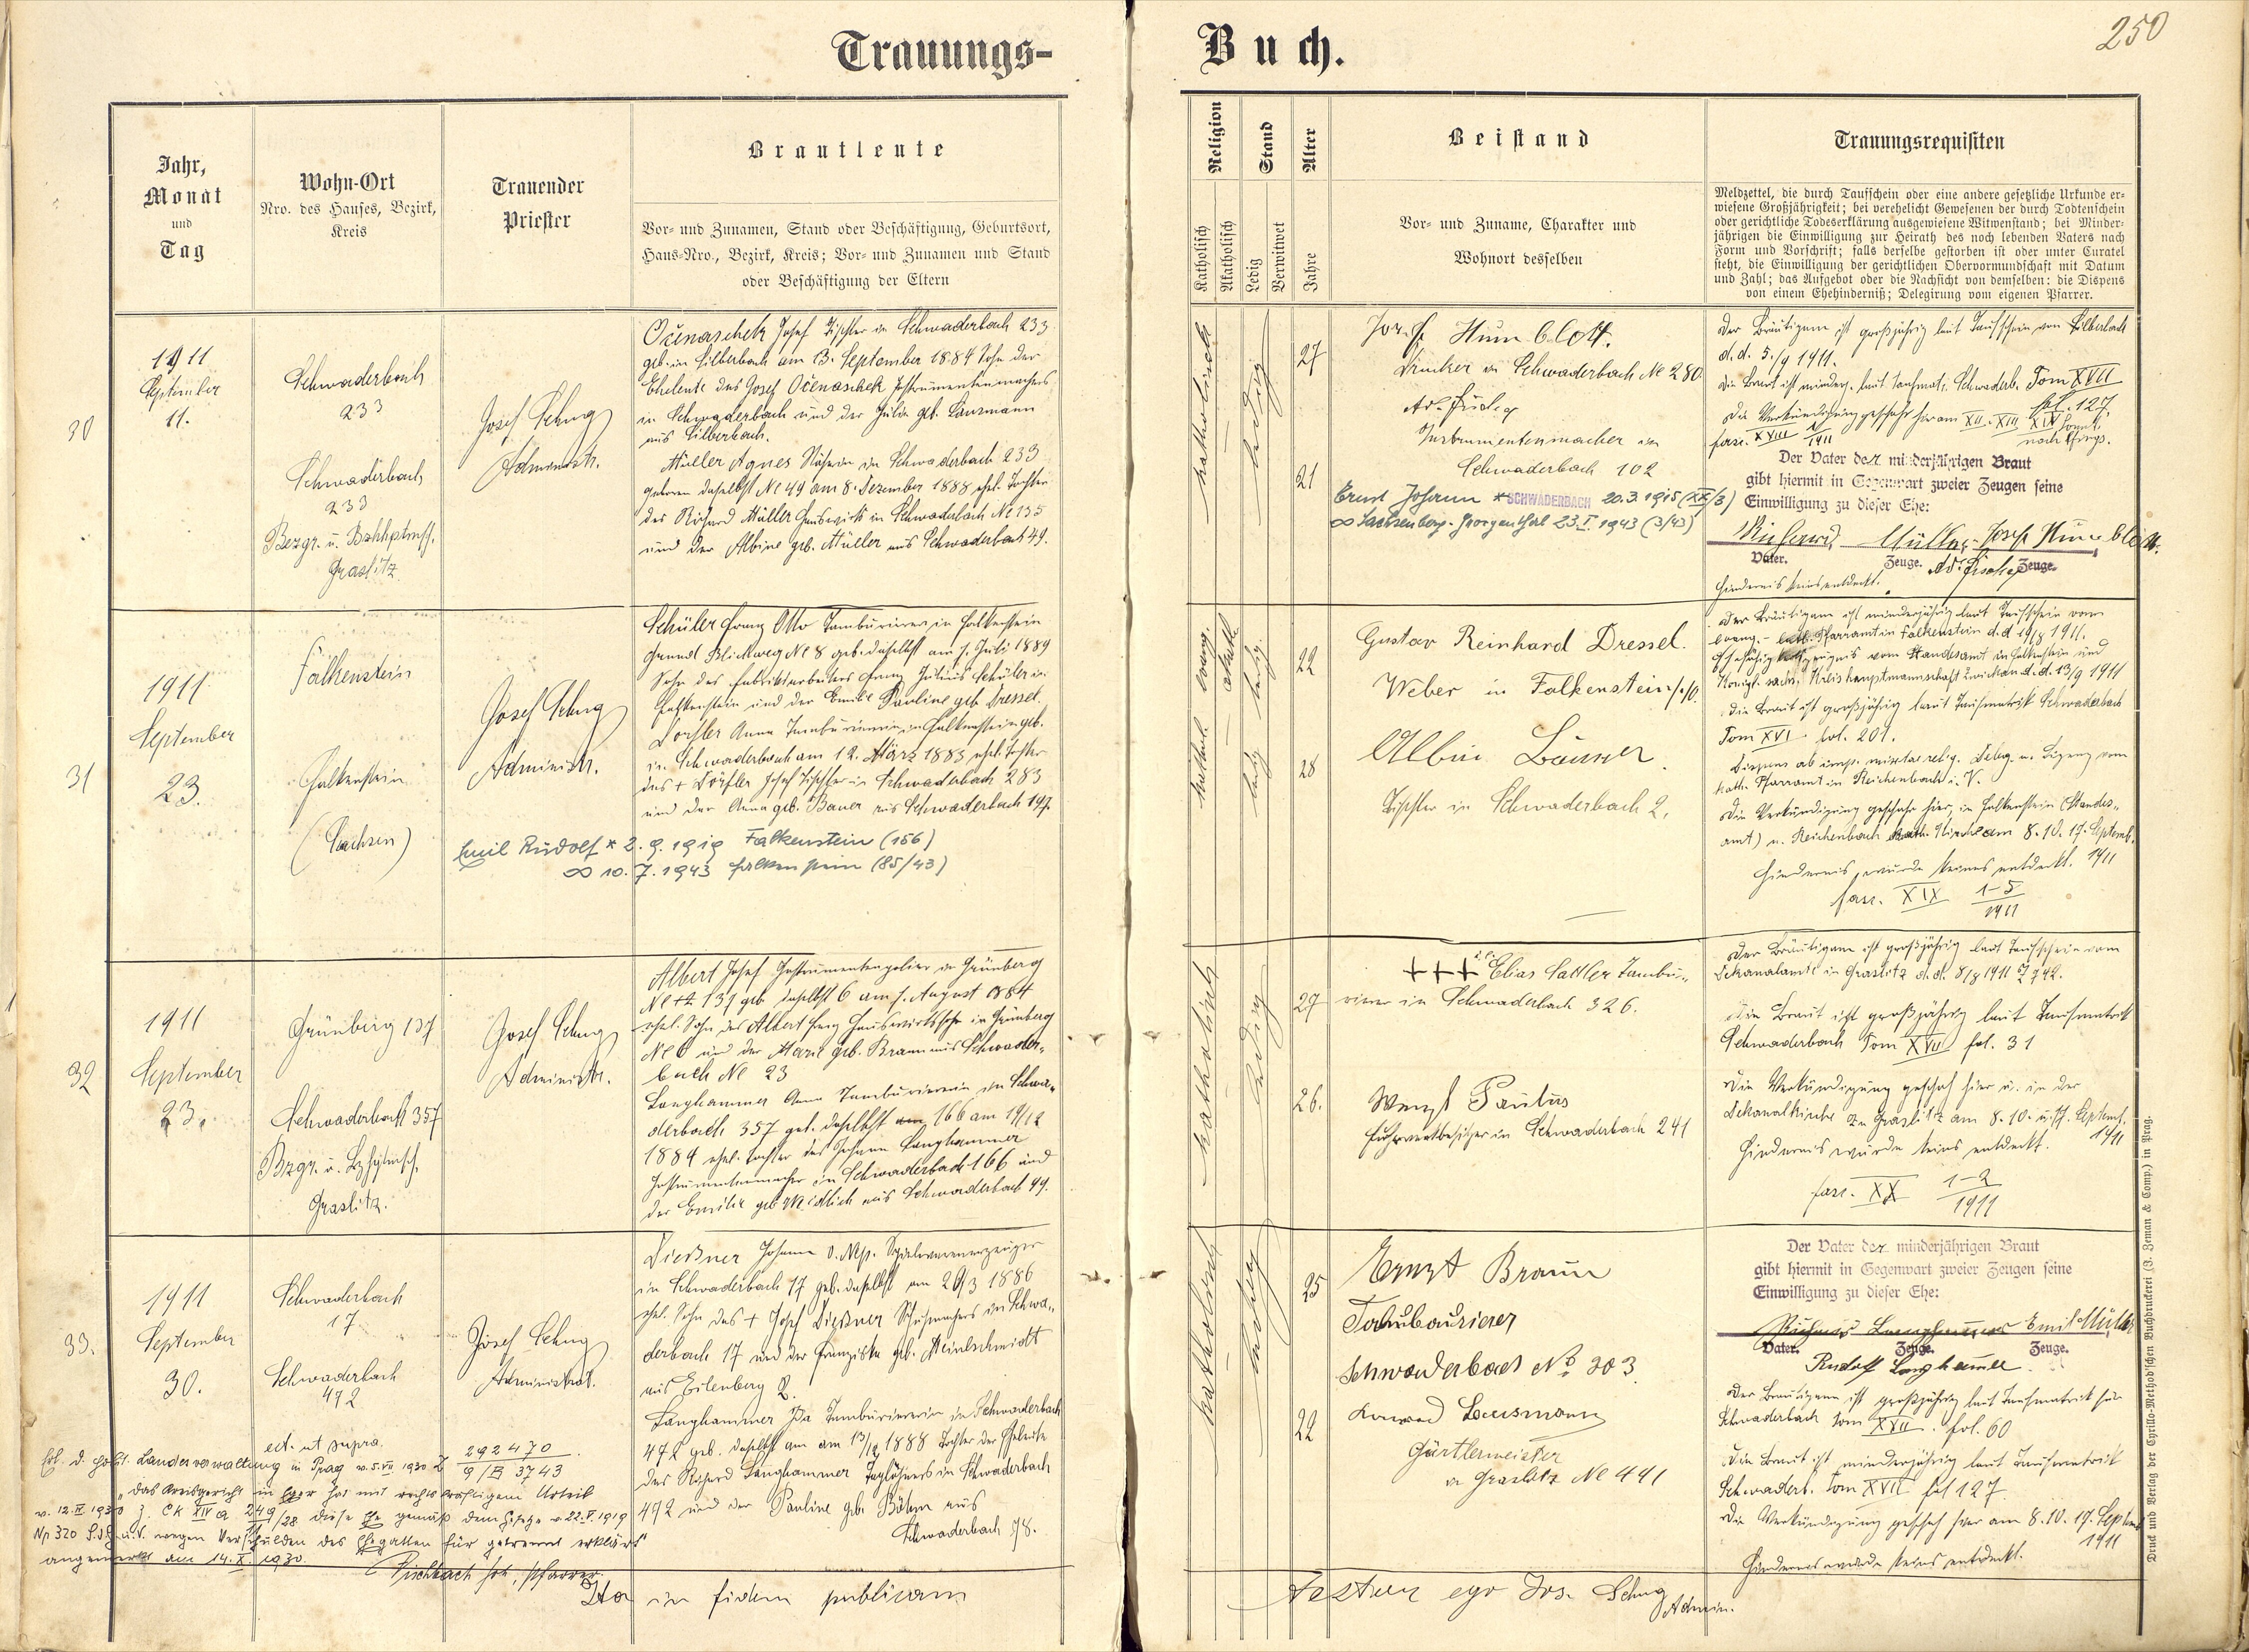 Trauungs-
Buch.
250
Jahr,
Monat
und
Tag
Wohn-Ort
Nro. des Hauses, Bezirk,
Kreis
Trauender
Priester
Brautleute
Vor- und Zunamen, Stand oder Beschäftigung, Geburtsort,
Haus-Nro., Bezirk, Kreis; Vor- und Zunamen und Stand
oder Beschäftigung der Eltern
Religion
Katholisch
Akatholisch
Stand
Ledig
Verwitwet
Alter
Jahre
Beistand
Vor- und Zuname, Charakter und
Wohnort desselben
Trauungsrequisiten
Meldzettel, die durch Taufschein oder eine andere gesetzliche Urkunde er-
wiesene Großjährigkeit; bei verehelicht Gewesenen der durch Todtenschein
oder gerichtliche Todeserklärung ausgewiesene Witwenstand; bei Minder-
jährigen die Einwilligung zur Heirath des noch lebenden Vaters nach
Form und Vorschrift; falls derselbe gestorben ist oder unter Curatel
steht, die Einwilligung der gerichtlichen Obervormundschaft mit Datum
und Zahl; das Aufgebot oder die Nachsicht von demselben: die Dispens
von einem Ehehinderniß; Delegirung vom eigenen Pfarrer.
30
1911
September
11.
Schwaderbach
233
Schwaderbach
233
Bezgr. u. Bzhhptmsch.
Graslitz
Josef Sehug
Administr.
Očenaschek Josef Tischler in Schwaderbach 233
geb. in Silberbach am 13. September 1884 Sohn der
Eheleute des Josef Očenaschek Instrumentenmachers
in Schwaderbach und der Julia geb.
aus Silberbach.
Müller Agnes Näherin in Schwaderbach 233
geboren daselbst No 49 am 8. Dezember 1888 ehel. Tochter
des Richard Müller Hauswirts in Schwaderbach No 135
und der Albine geb. Müller aus Schwaderbach 49.
katholisch
ledig
27
21
Josef
in Schwaderbach No 280
Ad.
Instrumentenmacher in
Schwaderbach 102
Ernst Johann * SCHWADERBACH 20.3.1915 (XX/3)
∞ Sachsenberg-Georgenthal 23.I.1943 (3/43)
Der Bräutigam ist großjährig laut Taufschein von Silberbach
d. d. 5./9 1911.
Die Braut ist minderj. laut Taufmatr. Schwaderb. Tom XVII
fol. 127.
Die Verkündigung geschah hier am XII. XIII. XIV Sonnt.
nach Pfings.
fasc. XVIII 1/1911
Der Vater der minderjährigen Braut
gibt hiermit in Gegenwart zweier Zeugen seine
Einwilligung zu dieser Ehe:
Richard Müller Josef
Vater. Zeuge. Zeuge.
Hindernis keins entdeckt.
31
1911
September
23.
Falkenstein
Falkenstein
(Sachsen)
Josef Sehug
Administr.
Schüler Franz Otto Tambourirer in Falkenstein
No 8 geb. daselbst am 7. Juli 1889
Sohn des Fabriksarbeiters Franz Julius Schüler in
Falkenstein und der Emilie Pauline geb. Dressel.
Dörfler Anna Tambouriererin in Falkenstein geb.
in Schwaderbach am 12. März 1883 ehel. Tochter
des + Dörfler Josef Tischler in Schwaderbach 283
und der Anna geb. Bauer aus Schwaderbach 197.
Emil Rudolf * 2.9.1919 Falkenstein (156)
∞ 10.7.1943 Falkenstein (85/43)
kathol. evang.
ledig ledig
22
28
Gustav Reinhard Dressel.
Weber in Falkenstein
Albin
Tischler in Schwaderbach 2.
Der Bräutigam ist minderjährig laut Taufschein vom
evang.- Pfarramt in Falkenstein d. d. 19/8 1911.
vom Standesamt in Falkenstein und
Königl. sächs. Kreishauptmannschaft Zwickau d. d. 13/9 1911
Die Braut ist großjährig laut Taufmatrik Schwaderbach
Tom XVI fol. 201.
Dispens ab imp. mixtae relig. Deleg. u. Lizenz vom
kath. Pfarramt in Reichenbach i. V.
Die Verkündigung geschah hier, in Falkenstein (Standes-
amt) u. Reichenbach kath. Kirche am 8. 10. 17. Septemb.
1911
Hindernis wurde keines entdeckt.
fasc. XIX 1-5/1911
32
1911
September
23.
Grünberg 137
Schwaderbach 357
Graslitz.
Josef Sehug
Administr.
Albert Josef Instrumentenpolirer in Grünberg
No 137 geb. daselbst 6 am 7. August 1884
ehel. Sohn des Albert Hauswirtssohn in Grünberg
No 6 und der Marie geb. Braun aus Schwader-
bach No 23
Langhammer Anna Tambouriererin in Schwa-
derbach 357 geb. daselbst 166 am 19/12
1884 ehel. Tochter des Johann Langhammer
Instrumentenmacher in Schwaderbach 166 und
der Emilie geb. aus Schwaderbach 99.
katholisch
ledig
27
26.
+++ Elias Sattler Tambu-
rirer in Schwaderbach 326.
Wenzl Paulus
Fuhrwerkbesitzer in Schwaderbach 241
Der Bräutigam ist großjährig laut Taufschein vom
Dekanalamte in Graslitz d. d. 8/8 1911 Z 742.
Die Braut ist großjährig laut Taufmatrik
Schwaderbach Tom XVII fol. 31
Die Verkündigung geschah hier u. in der
Dekanalkirche zu Graslitz am 8. 10. u. 17. Septemb.
1911
Hindernis wurde keins entdeckt.
fasc. XX 1-2/1911
33.
1911
September
30.
Schwaderbach
17
Schwaderbach
492
ect. ut supra.
Josef Sehug
Administrat.
Dießner Johann v. Nep. Spielwarenerzeuger
in Schwaderbach 17 geb. daselbst am 20/3 1886
ehel. Sohn des + Josef Dießner Schuhmachers in Schwa-
derbach 17 und der Franziska geb. Meinlschmidt
aus Eilenberg 2.
Langhammer Ida Tambouriererin in Schwaderbach
472 geb. daselbst am 13/12 1888 Tochter der Eheleute
des Richard Langhammer Taglöhners in Schwaderbach
492 und der Pauline geb. Böhm aus
Schwaderbach 78.
Erl. d. Landesverwaltung in Prag v. 5.VII. 1930 Z 292470/9/B 3743
"Das Kreisgericht in Eger hat mit rechtskräftigem Urteil
v. 12.II 1930 Z. Ck XIV a 249/28 diese Ehe gemäß dem Gesetze v. 22.V.1919
Np 320 S.d.G.u.V. wegen Verschulden des Ehegatten für getrennt erklärt"
angemerkt am 14.X 1930.
Pfarrer.
katholisch
ledig
25
22
Ernst Braun
Tambourierer
Schwaderbach No 303.
Konrad Lausmann
Gürtlermeister
in Graslitz No 441
Der Vater der minderjährigen Braut
gibt hiermit in Gegenwart zweier Zeugen seine
Einwilligung zu dieser Ehe:
Richard Langhammer Emil Müller
Vater. Zeuge. Zeuge.
Rudolf Langhammer
Der Bräutigam ist großjährig laut Taufmatrik hier
Schwaderbach tom XVII. fol. 60
Die Braut ist minderjährig laut Taufmatrik
Schwaderb. tom XVII fol 127.
Die Verkündigung geschah hier am 8. 10. 17. Septemb
1911
Hindernis wurde keins entdeckt.
Ita in fidem publicam
testor ego Jos. Sehug
Admin.
Druck und Verlag der Cyrillo-Method'schen Buchdruckerei (J. Zeman & Comp.) in Prag.